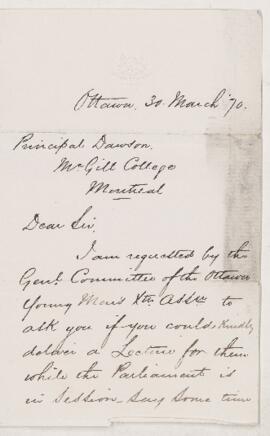 Ottawa, 30 March '70.
Principal Dawson.
McGill College
Montreal
Dear Sir,
I am requested by the
Genl. Committee of the Ottawa
Young Men's Xtn Assn to
ask you if you could kindly
deliver a Lecture for them
while the Parliament is
in Session - say some time